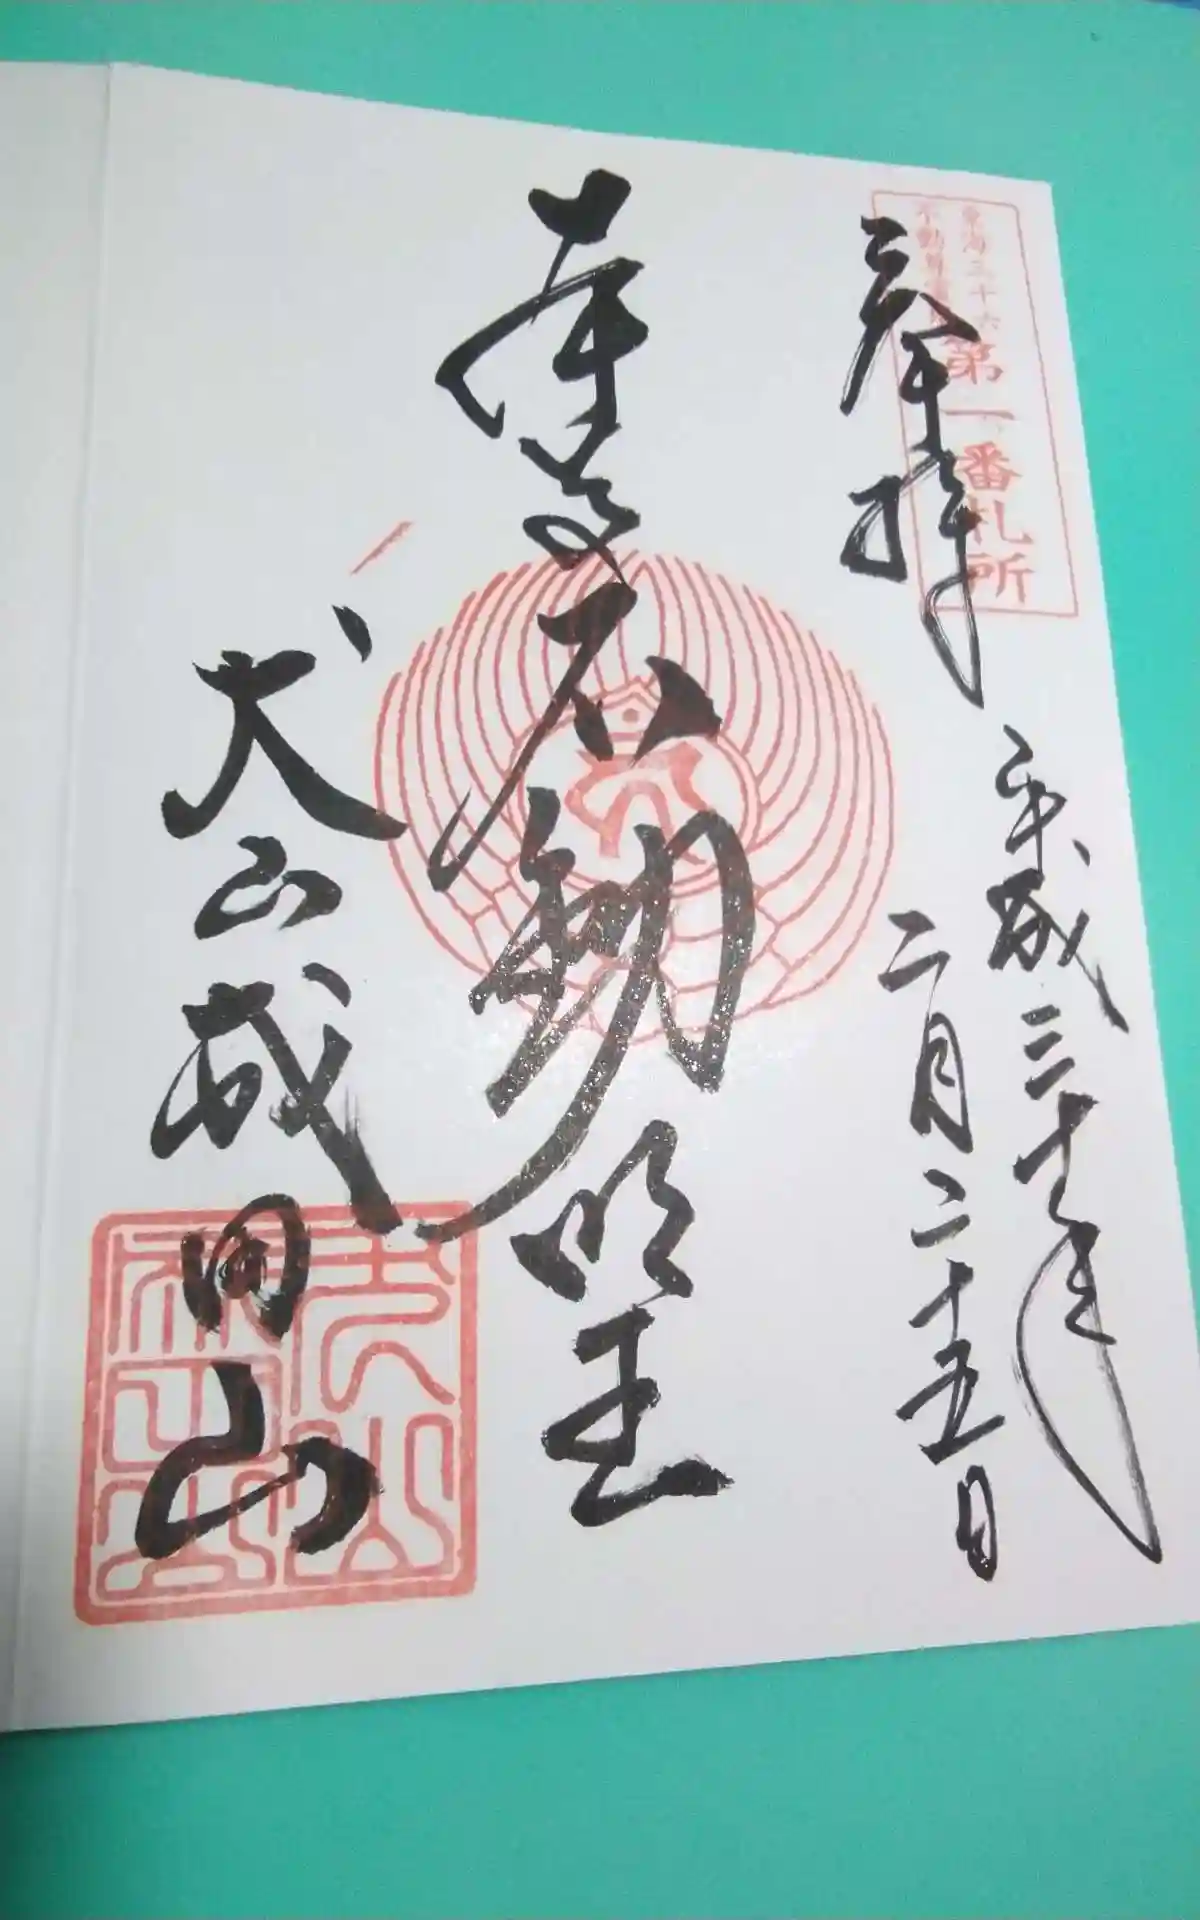 東海三十六
不動尊霊場
第一番札所
奉拝
平成三十年
二月二十五日
本尊不動明王
犬山成田山